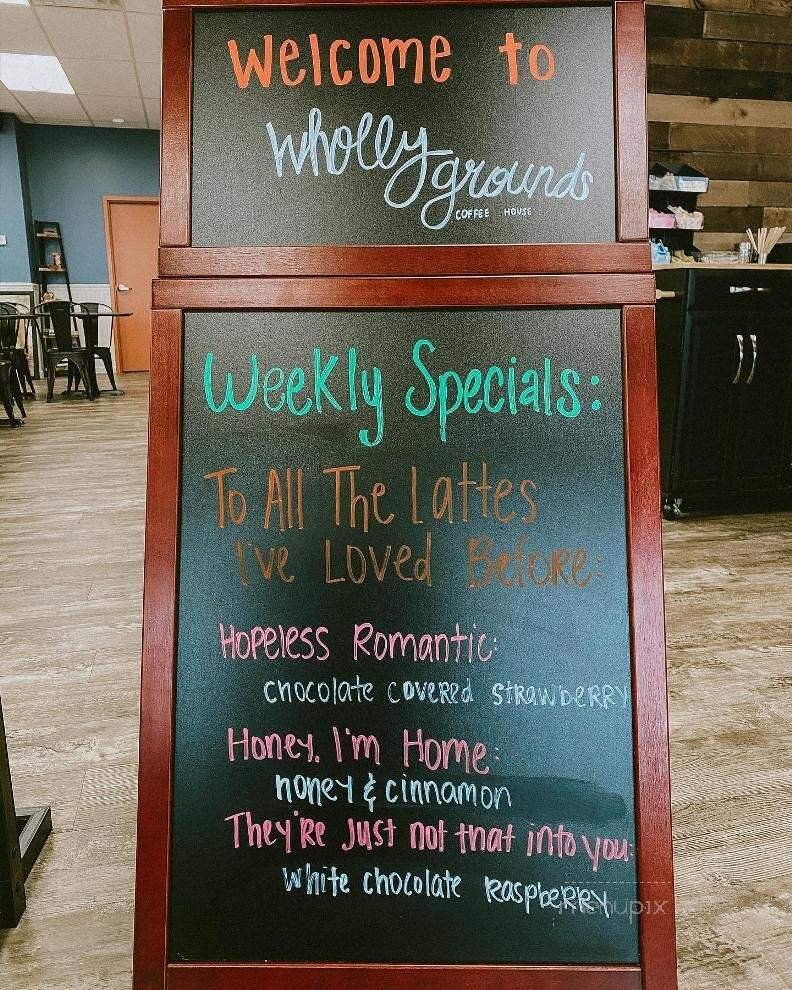 Welcome to
wholly grounds
COFFEE HOUSE
Weekly Specials:
To All The Lattes
I've Loved Before:
Hopeless Romantic:
chocolate covered strawberry
Honey, I'm Home:
honey & cinnamon
They're Just not that into you:
white chocolate raspberry
menupix